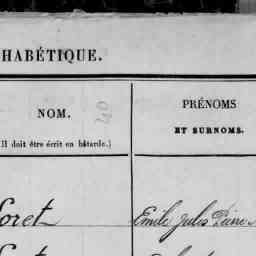 HABÉTIQUE.
NOM.
PRÉNOMS
ET SURNOMS.
Il doit être écrit en bâtarde.)
oret Emile Jules Pierre